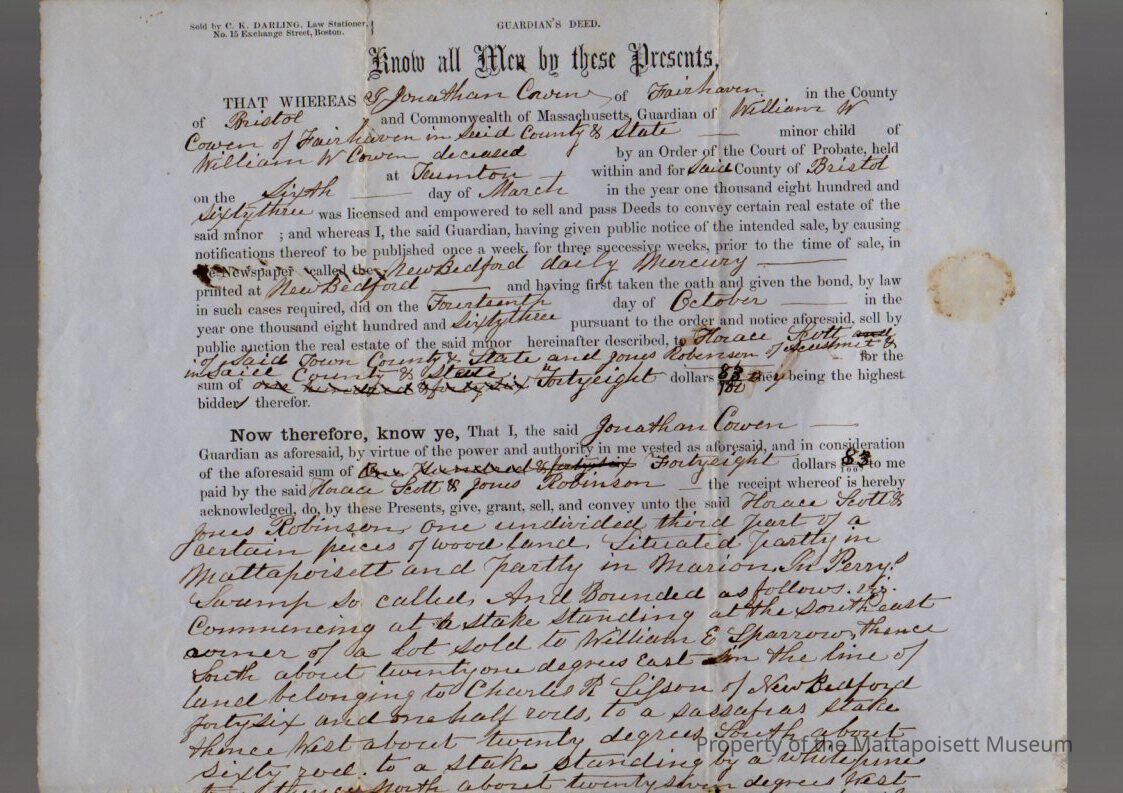 Sold by C. K. DARLING, Law Stationer,
No. 15 Exchange Street, Boston.
GUARDIAN'S DEED.
Know all Men by these Presents,
THAT WHEREAS I Jonathan Cowen of Fairhaven in the County
of Bristol and Commonwealth of Massachusetts, Guardian of William W
Cowen of Fairhaven in Said County & State minor child of
William W Cowen deceased by an Order of the Court of Probate, held
at Taunton within and for Said County of Bristol
on the Sixth day of March in the year one thousand eight hundred and
Sixtythree was licensed and empowered to sell and pass Deeds to convey certain real estate of the
said minor ; and whereas I, the said Guardian, having given public notice of the intended sale, by causing
notifications thereof to be published once a week, for three successive weeks, prior to the time of sale, in
the Newspaper called the New Bedford daily Mercury
printed at New Bedford and having first taken the oath and given the bond, by law
in such cases required, did on the Fourteenth day of October in the
year one thousand eight hundred and Sixtythree pursuant to the order and notice aforesaid, sell by
public auction the real estate of the said minor hereinafter described, to Horace Scott and
of Said Town County & State and Jones Robinson of Acushnet &
in Said County & State for the
sum of one hundred & forty six Fortyeight dollars 83/100 they being the highest
bidder therefor.
Now therefore, know ye, That I, the said Jonathan Cowen
Guardian as aforesaid, by virtue of the power and authority in me vested as aforesaid, and in consideration
of the aforesaid sum of One Hundred & forty six Fortyeight dollars 83/100 to me
paid by the said Horace Scott & Jones Robinson the receipt whereof is hereby
acknowledged, do, by these Presents, give, grant, sell, and convey unto the said Horace Scott &
Jones Robinson one undivided third part of a
certain pieces of wood land, Situated partly in
Mattapoisett and partly in Marion, In Perry's
Swamp so called, And Bounded as follows. viz.
Commencing at a stake standing at the South east
corner of a lot sold to William E Sparrow, thence
South about twentyone degrees east in the line of
land belonging to Charles R of New Bedford
forty six and one half rods, to a sassafras stake
thence West about twenty degrees South about
sixty rod. to a stake standing by a white pine
thence North about twentyseven degrees West
Property of the Mattapoisett Museum